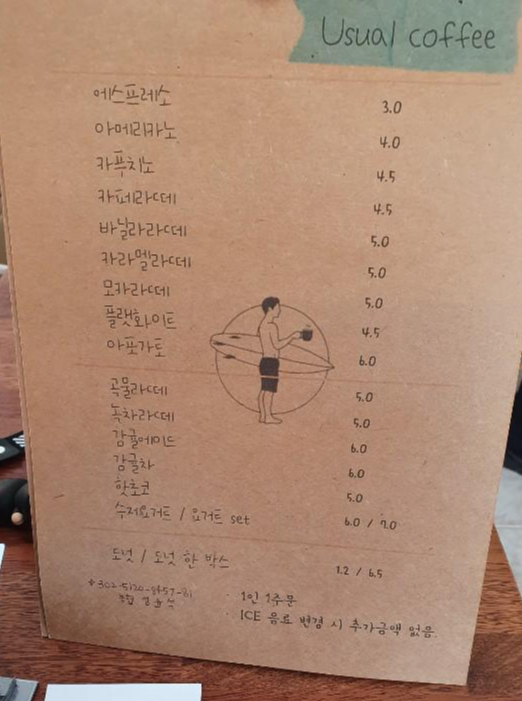 Usual coffee
에스프레소 3.0
아메리카노 4.0
카푸치노 4.5
카페라떼 4.5
바닐라라떼 5.0
카라멜라떼 5.0
모카라떼 5.0
플랫화이트 4.5
아포가토 6.0
곡물라떼 5.0
녹차라떼 5.0
감귤에이드 6.0
감귤차 6.0
핫초코 5.0
수제요거트 / 요거트 set 6.0 / 7.0
도넛 / 도넛 한 박스 1.2 / 6.5
농협
· 1인 1주문
· ICE 음료 변경 시 추가금액 없음